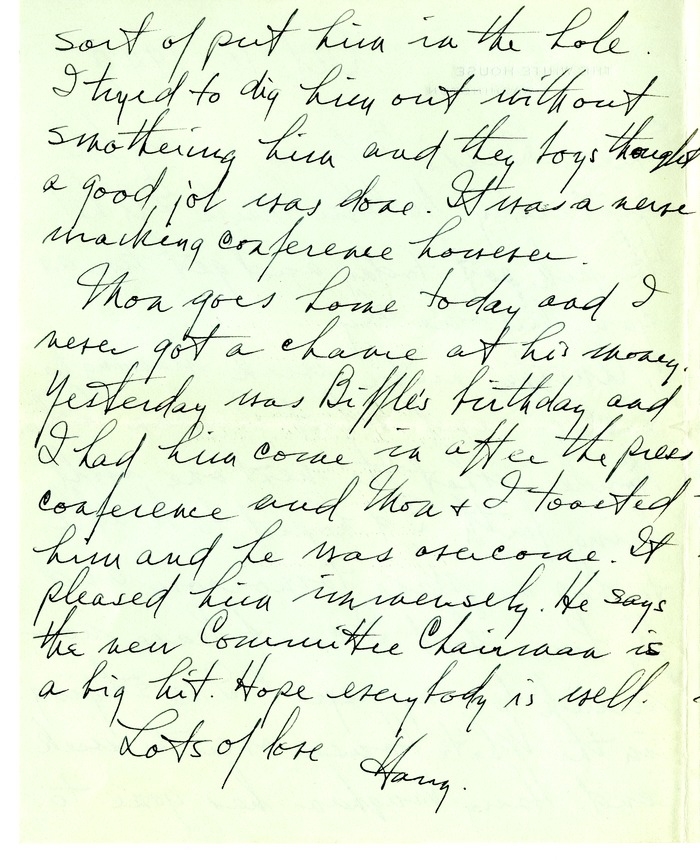 sort of put him in the hole.
I tryed to dig him out without
smothering him and they boys thought
a good job was done. It was a nerve
wracking conference however.
Mon goes home today and I
never got a chance at his money.
Yesterday was Biffle's birthday and
I had him come in after the press
conference and Mon & I toasted
him and he was overcome. It
pleased him immensely. He says
the new Committee Chairman is
a big hit. Hope everybody is well.
Lots of love
Harry.